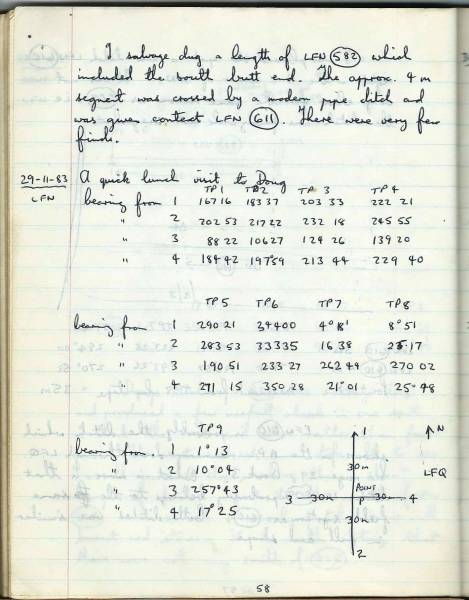 I salvage dug a length of LFN (582) which
included the south butt end. The approx. 4 m
segment was crossed by a modern pipe ditch and
was given context LFN (611). There were very few
finds.
29-11-83 A quick lunch visit to Doug
LFN
TP1 TP2 TP 3 TP4
bearing from 1 167 16 183 37 203 33 222 21
" 2 202 53 217 22 232 18 245 55
" 3 88 22 106 27 124 26 139 20
" 4 184 42 197°59 213 44 229 40
TP5 TP6 TP7 TP8
bearing from 1 290 21 344 00 4°18' 8°51
" 2 283 53 333 35 16 38 25·17
" 3 190 51 233 27 262 49 270 02
" 4 291 15 350 28 21°01 25°48
TP9
bearing from. 1 1°13
" 2 10°04
" 3 257°43
" 4 17°25
1
N
30m
LFQ
POINT
3 30m P 30m 4
30m
2
58